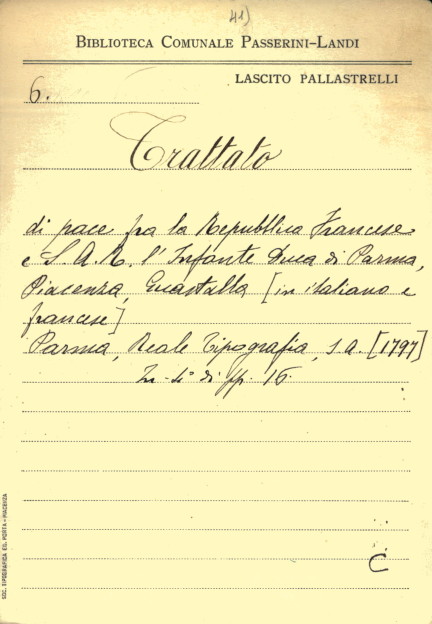 41)
BIBLIOTECA COMUNALE PASSERINI-LANDI
LASCITO PALLASTRELLI
6.
Trattato
di pace fra la Repubblica Francese
e S. A. R. l'Infante Duca di Parma,
Piacenza, Guastalla [in italiano e
francese]
Parma, Reale Tipografia, s. a. [1797]
In-4° di pp. 16.
C
SOC. TIPOGRAFICA ED. PORTA - PIACENZA